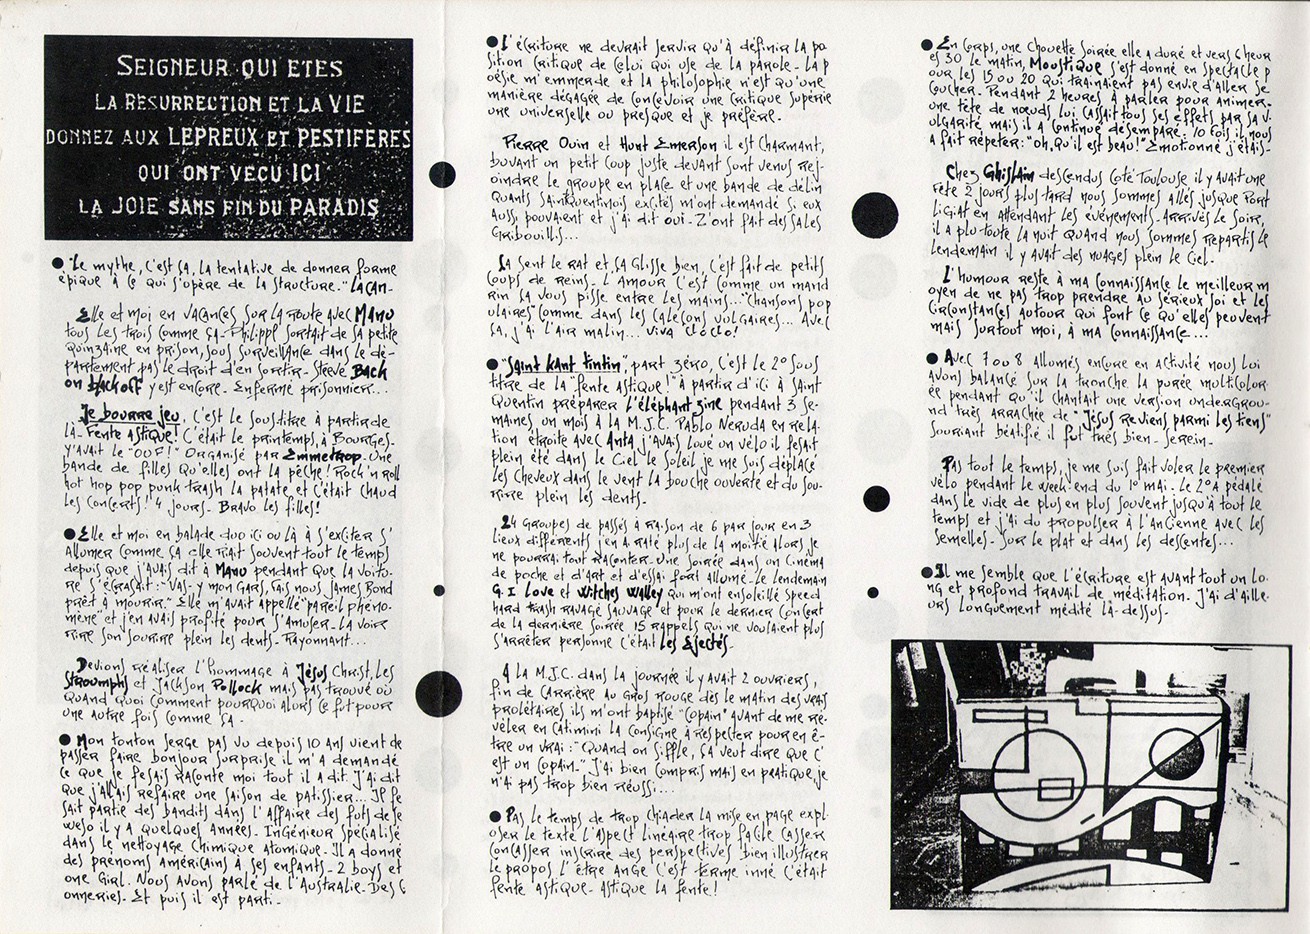 SEIGNEUR QUI ETES
LA RESURRECTION ET LA VIE
DONNEZ AUX LEPREUX ET PESTIFERES
QUI ONT VECU ICI
LA JOIE SANS FIN DU PARADIS
● "Le mythe, c'est sa, la tentative de donner forme
épique à ce qui s'opère de la structure." LACAN-
Elle et moi en vacances sur la route avec MANU
tous les trois comme sa- Philippe sortait de sa petite
quinzaine en prison, sous surveillance dans le dé-
partement pas le droit d'en sortir- Steeve Back
on black off y est encore- Enfermé prisonnier...
Je bourre jeu, c'est le soustitre à partir de
là- Fente astique! C'était le printemps, à Bourges-
y'avait le "OUF!" organisé par Emmetrop- Une
bande de filles qu'elles ont la pêche! Rock'n roll
hot hop pop punk trash la patate et c'était chaud
les concerts! 4 jours- Bravo les filles!
● Elle et moi en balade duo ici ou là à s'exciter s'
allumer comme sa elle riait souvent tout le temps
depuis que j'avais dit à MANU pendant que la voitu-
re s'écrasait: "Vas-y mon gars, fais nous James Bond
prêt à mourir." Elle m'avait appellé "pareil phéno-
mène" et j'en avais profité pour s'amuser- La voir
rire son sourire plein les dents- Rayonnant...
Devions réaliser l'hommage à Jésus Christ, les
Stroumphs et Jackson Pollock mais pas trouvé où
quand quoi comment pourquoi alors ce fut pour
une autre fois comme sa-
● Mon tonton Serge pas vu depuis 10 ans vient de
passer faire bonjour surprise il m'a demandé
ce que je fesais raconte moi tout il a dit- J'ai dit
que j'allais refaire une saison de patissier... Il fe
sait partie des bandits dans l'affaire des futs de Se
weso il y a quelques années- Ingénieur spécialisé
dans le nettoyage chimique atomique- Il a donné
des prénoms américains à ses enfants- 2 boys et
one girl- Nous avons parlé de l'Australie- Des c
onneries- Et puis il est parti-
● L'écriture ne devrait servir qu'à définir la po
sition critique de celui qui use de la parole- La p
oésie m'emmerde et la philosophie n'est qu'une
manière dégagée de concevoir une critique supérie
ure universelle ou presque et je préfère-
Pierre Ouin et Hunt Emerson il est charmant,
buvant un petit coup juste devant sont venus rej-
oindre le groupe en place et une bande de délin
quants sainquentinois excités m'ont demandé si eux
aussi pouvaient et j'ai dit oui- Z'ont fait des sales
gribouillis...
Sa sent le rat et sa glisse bien, c'est fait de petits
coups de reins- L'amour c'est comme un mand
rin sa vous pisse entre les mains... "Chansons pop
ulaires" comme dans les calesons vulgaires... Avec
sa, j'ai l'air malin... viva clo clo!
● "Saint Kant tintin", part zéro, c'est le 2° sous
titre de la "fente astique!" à partir d'ici à Saint
Quentin préparer l'éléphant zine pendant 3 se-
maines un mois à la M.J.C. Pablo Neruda en rela
tion étroite avec Anta j'avais loué un vélo il fesait
plein été dans le ciel le soleil je me suis déplacé
les cheveux dans le vent la bouche ouverte et du sou-
rire plein les dents-
24 groupes de passés à raison de 6 par jour en 3
lieux différents j'en a raté plus de la moitié alors je
ne pourrai tout raconter- Une soirée dans on cinéma
de poche et d'art et d'essai fort allumé- Le lendemain
G. I Love et Witches Walley qui m'ont ensoleillé speed
hard trash ravagé sauvage et pour le dernier concert
de la dernière soirée 15 rappels qui ne voulaient plus
s'arrêter personne c'était les Ejectés-
A la M.J.C. dans la journée il y avait 2 ouvriers,
fin de carrière au gros rouge dès le matin des vrais
prolétaires ils m'ont baptisé "copain" avant de me ré-
véler en catimini la consigne à respecter pour en ê-
tre un vrai: "Quand on siffle, sa veut dire que c'
est un copain-" J'ai bien compris mais en pratique, je
n'ai pas trop bien réussi...
● Pas le temps de trop chiader la mise en page expl
oser le texte l'aspect linéaire trop facile casser
concasser inscrire des perspectives bien illustrer
le propos l'être ange c'est terme inné c'était
fente astique- Astique la fente!
● En corps, une chouette soirée elle a duré et vers 6 heur
es 30 le matin, Moustique s'est donné en spectacle p
our les 15 ou 20 qui trainaient pas envie d'aller se
coucher- Pendant 2 heures à parler pour animer-
une tête de nœuds lui cassait tous ses effets par sa v-
ulgarité mais il a continué désemparé- 10 fois il nous
a fait répéter: "oh, qu'il est beau!" Emotionné j'étais-
Chez Ghislain descendus coté Toulouse il y avait une
fête 2 jours plus tard nous sommes allés jusque Port
Ligiat en attendant les événements- Arrivés le soir,
il a plu toute la nuit quand nous sommes repartis le
lendemain il y avait des nuages plein le ciel-
L'humour reste à ma connaissance le meilleur m
oyen de ne pas trop prendre au sérieux soi et les
circonstances autour qui font ce qu'elles peuvent
mais surtout moi, à ma connaissance...
● Avec 7 ou 8 allumés encore en activité nous lui
avons balancé sur la tronche la purée multicolor-
ée pendant qu'il chantait une version undergrou-
nd très arrachée de "Jésus reviens parmi les tiens"
souriant béatifié il fut très bien- Serein-
Pas tout le temps, je me suis fait voler le premier
vélo pendant le week-end du 1° mai- Le 2° a pédalé
dans le vide de plus en plus souvent jusqu'à tout le
temps et j'ai du propulser à l'ancienne avec les
semelles- Sur le plat et dans les descentes...
● Il me semble que l'écriture est avant tout un lo-
ng et profond travail de méditation- J'ai d'aille-
urs longuement médité là-dessus-